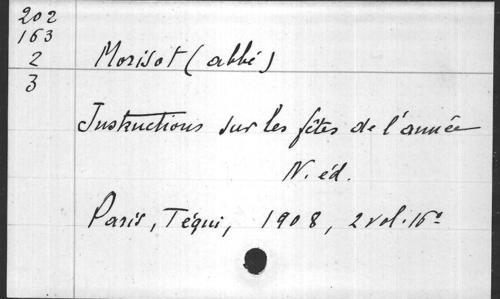 202
163
2
3
Morisot (abbé)
Instructions sur les fêtes de l'année
N. éd.
Paris, Téqui, 1908, 2 vol. 16º